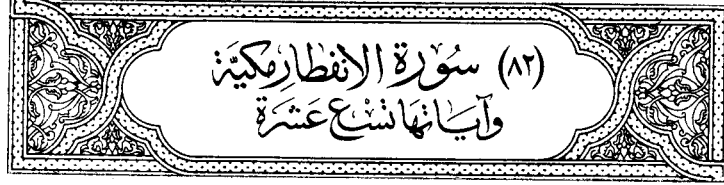 (٨٢) سُورَة الانفطار مكيَّة
وآيَاتها تسْع عَشرَة